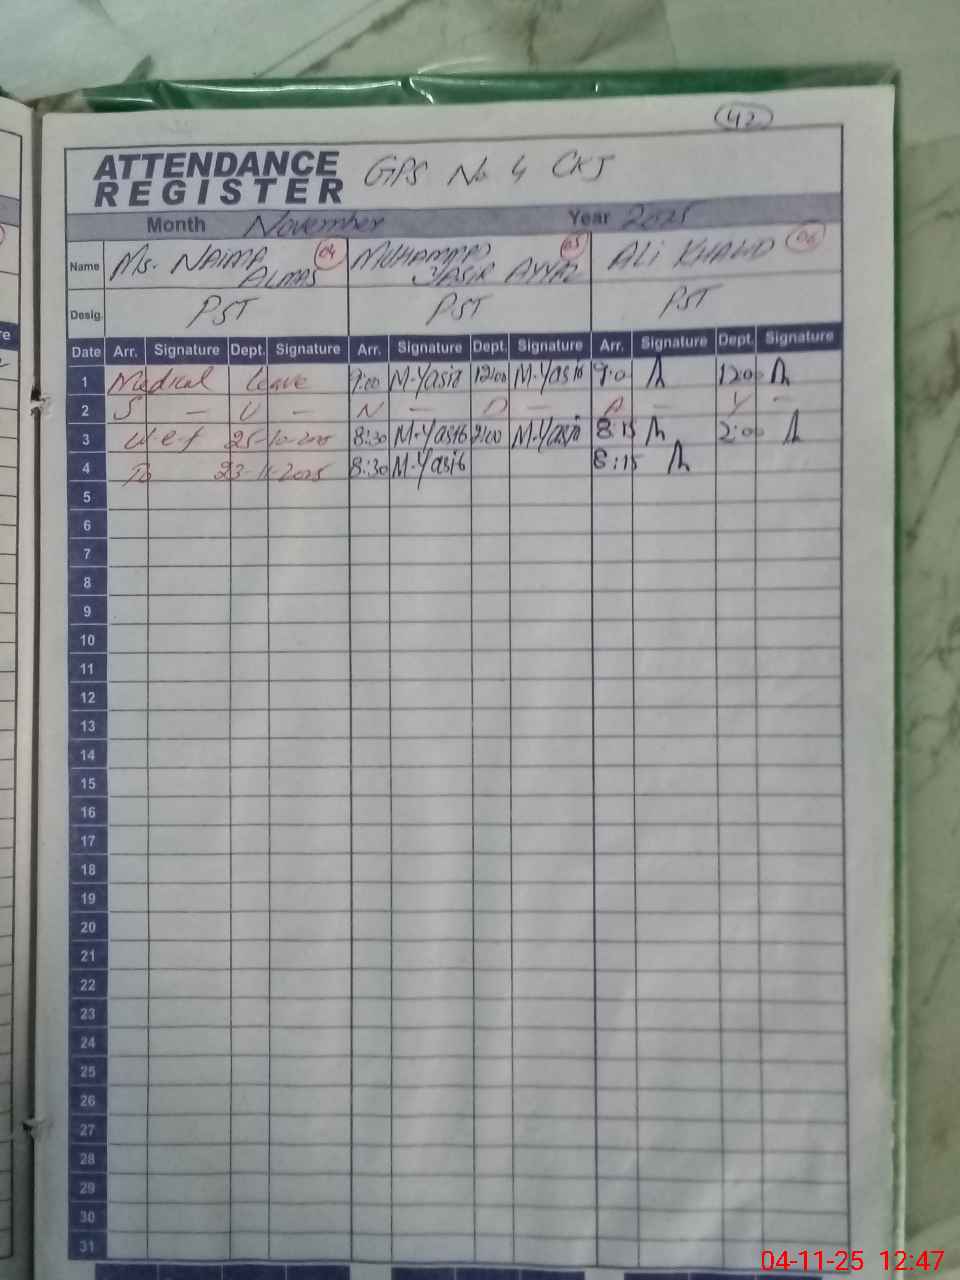 42
ATTENDANCE REGISTER GPS No 4 CKJ
Month November Year 2025
Name Ms. NAIMA ALMAS 04 MUHAMMAD YASIR AYYAZ 05 ALI KHALID 06
Desig. PST PST PST
Date Arr. Signature Dept. Signature Arr. Signature Dept. Signature Arr. Signature Dept. Signature
1 Medical leave 9:00 M.Yasir 12:00 M.Yasir 9:0 1200
2 S — U — N — D — A — Y —
3 w.e.f 25-10-2025 8:30 M.Yasir 2:00 M.Yasir 8:15 2:00
4 To 23-11-2025 8:30 M.Yasir 8:15
5
6
7
8
9
10
11
12
13
14
15
16
17
18
19
20
21
22
23
24
25
26
27
28
29
30
31
04-11-25 12:47